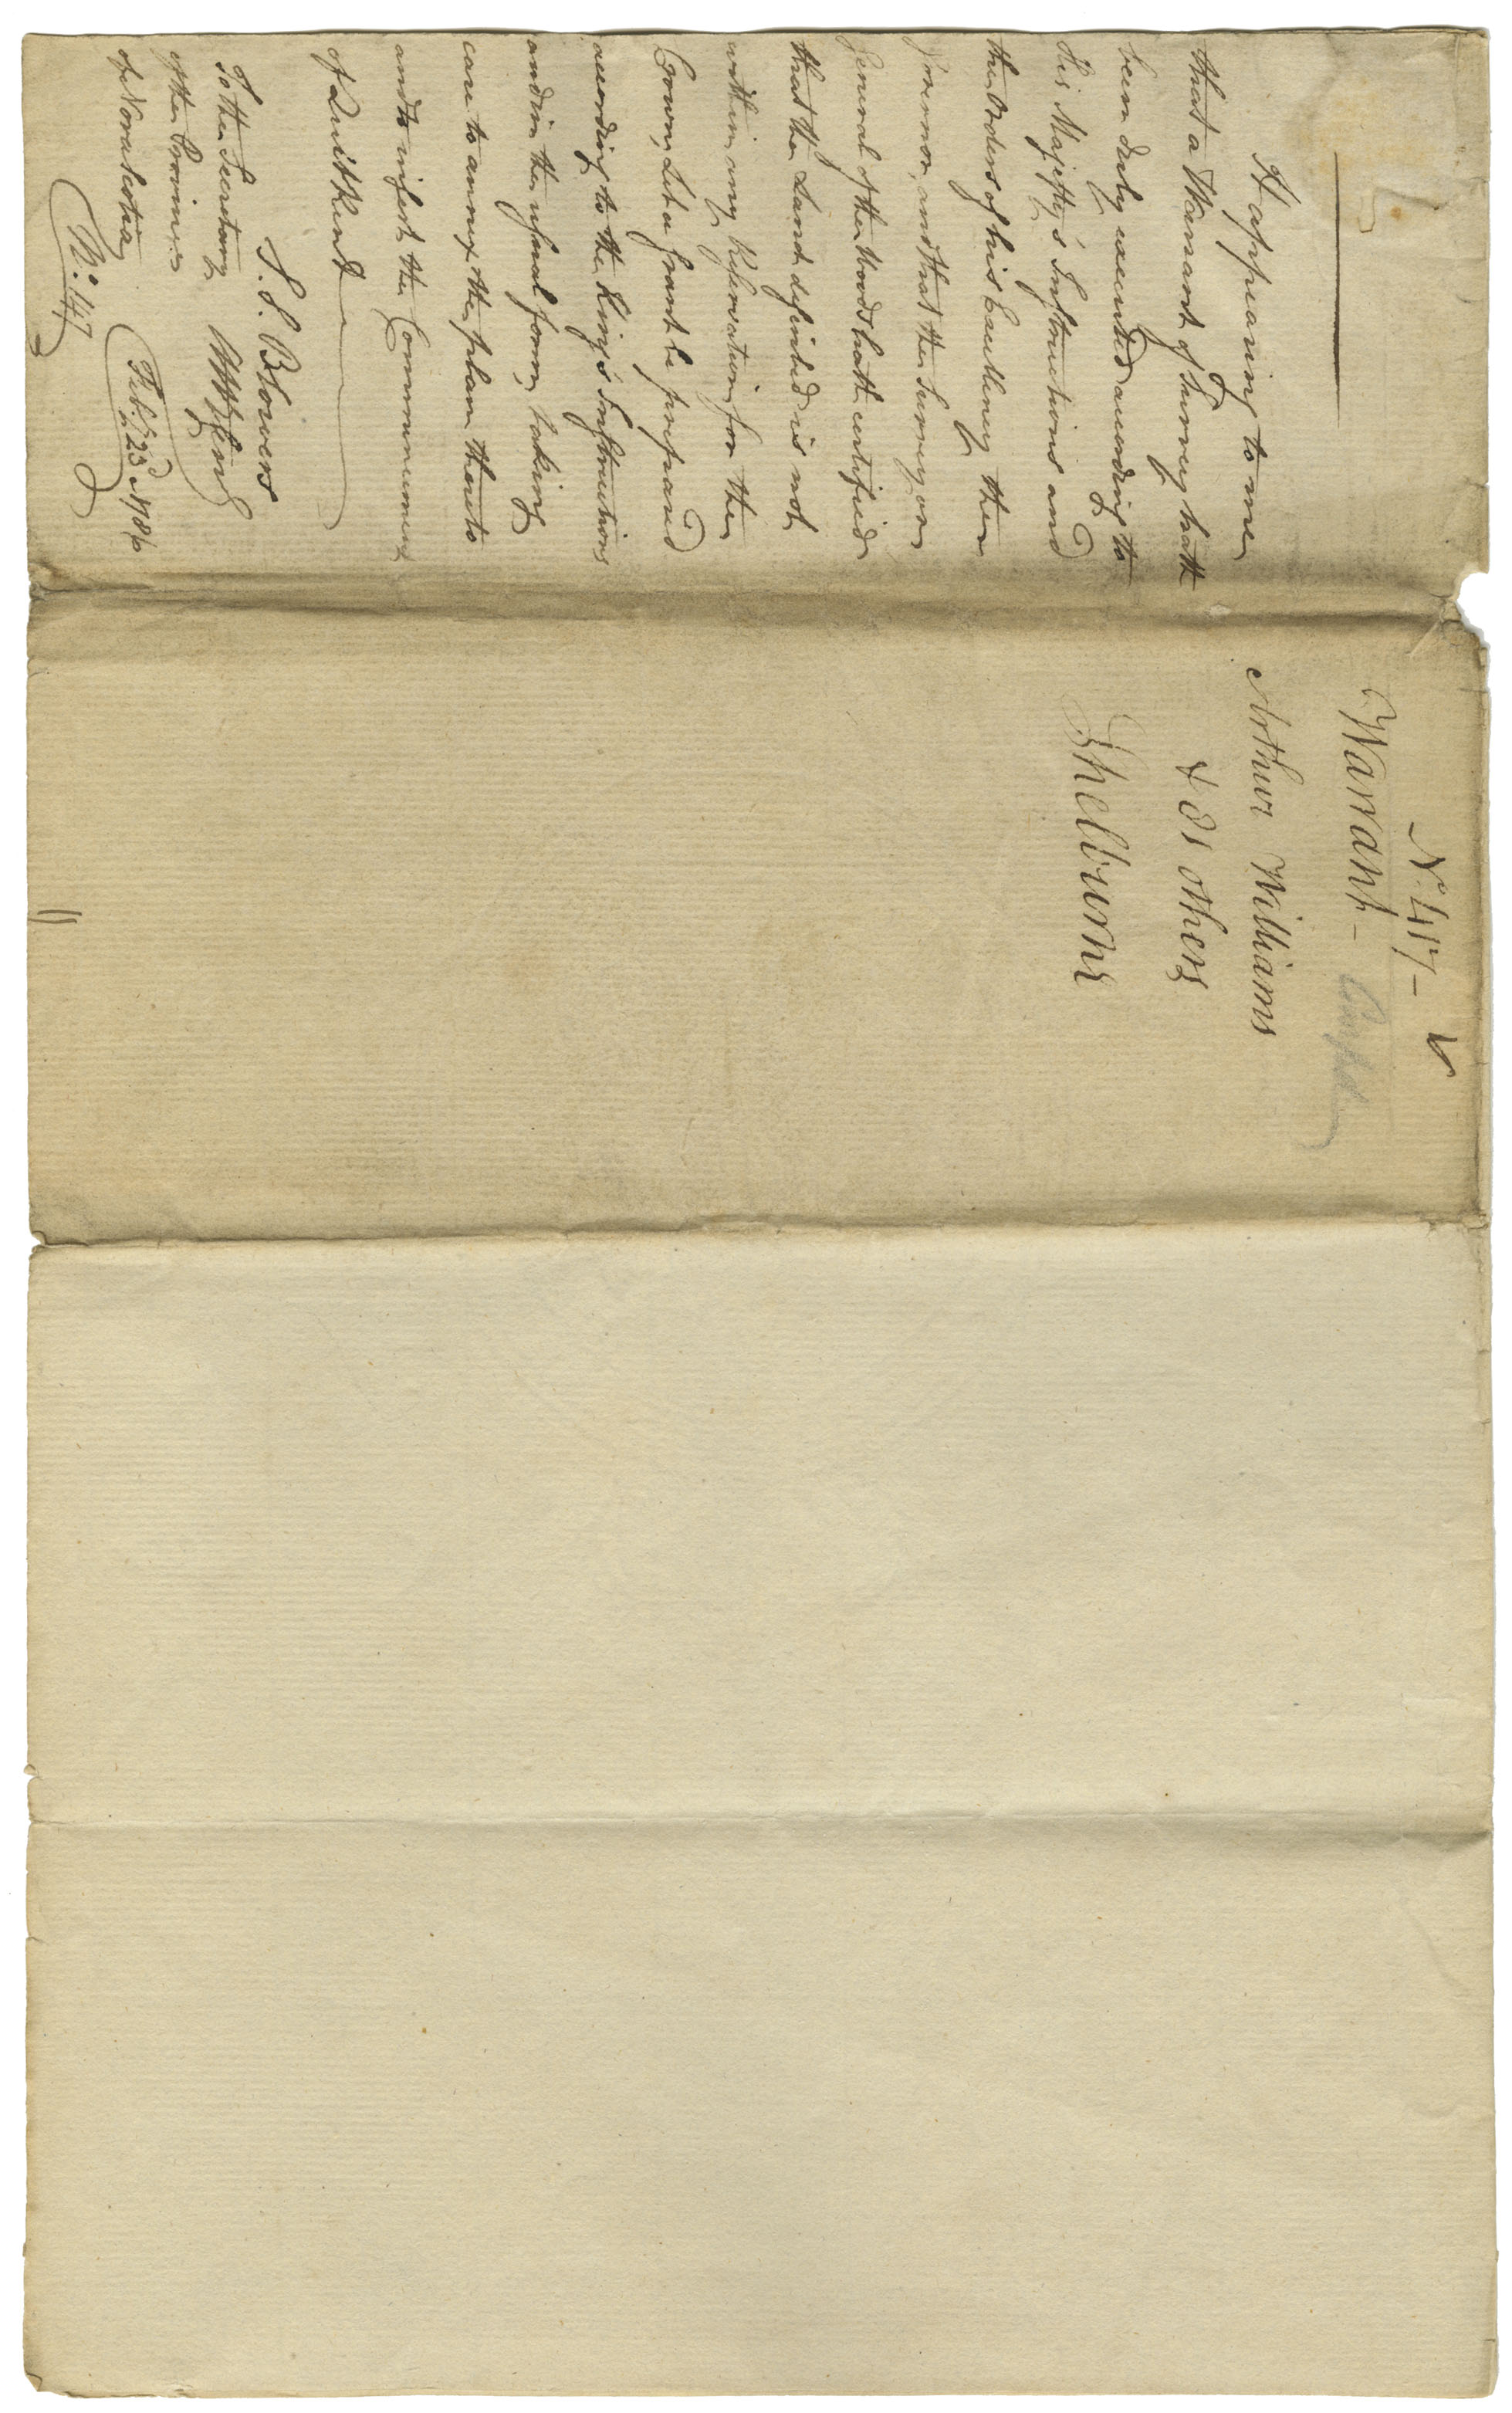 It appearing to me
that a Warrant of Survey hath
been duly executed according to
His Majesty's Instructions and
the Orders of his Excellency the
Governor, and that the Surveyor
General of the Woods hath certified
that the Land described is not
within any Reservation for the
Crown, Let a Grant be prepared
according to the King's Instructions
and in the usual form, taking
care to annex the plan thereto
and to insert the Commencement
of Quit Rent
S. S. Blowers
Att^y Gen^l
To the Secretary
of the Province
of Nova Scotia
Feb^y 23^d 1786
N^o. 147
N^o. 417 -
Warrant -
Arthur Williams
& 31 others
Shelburne